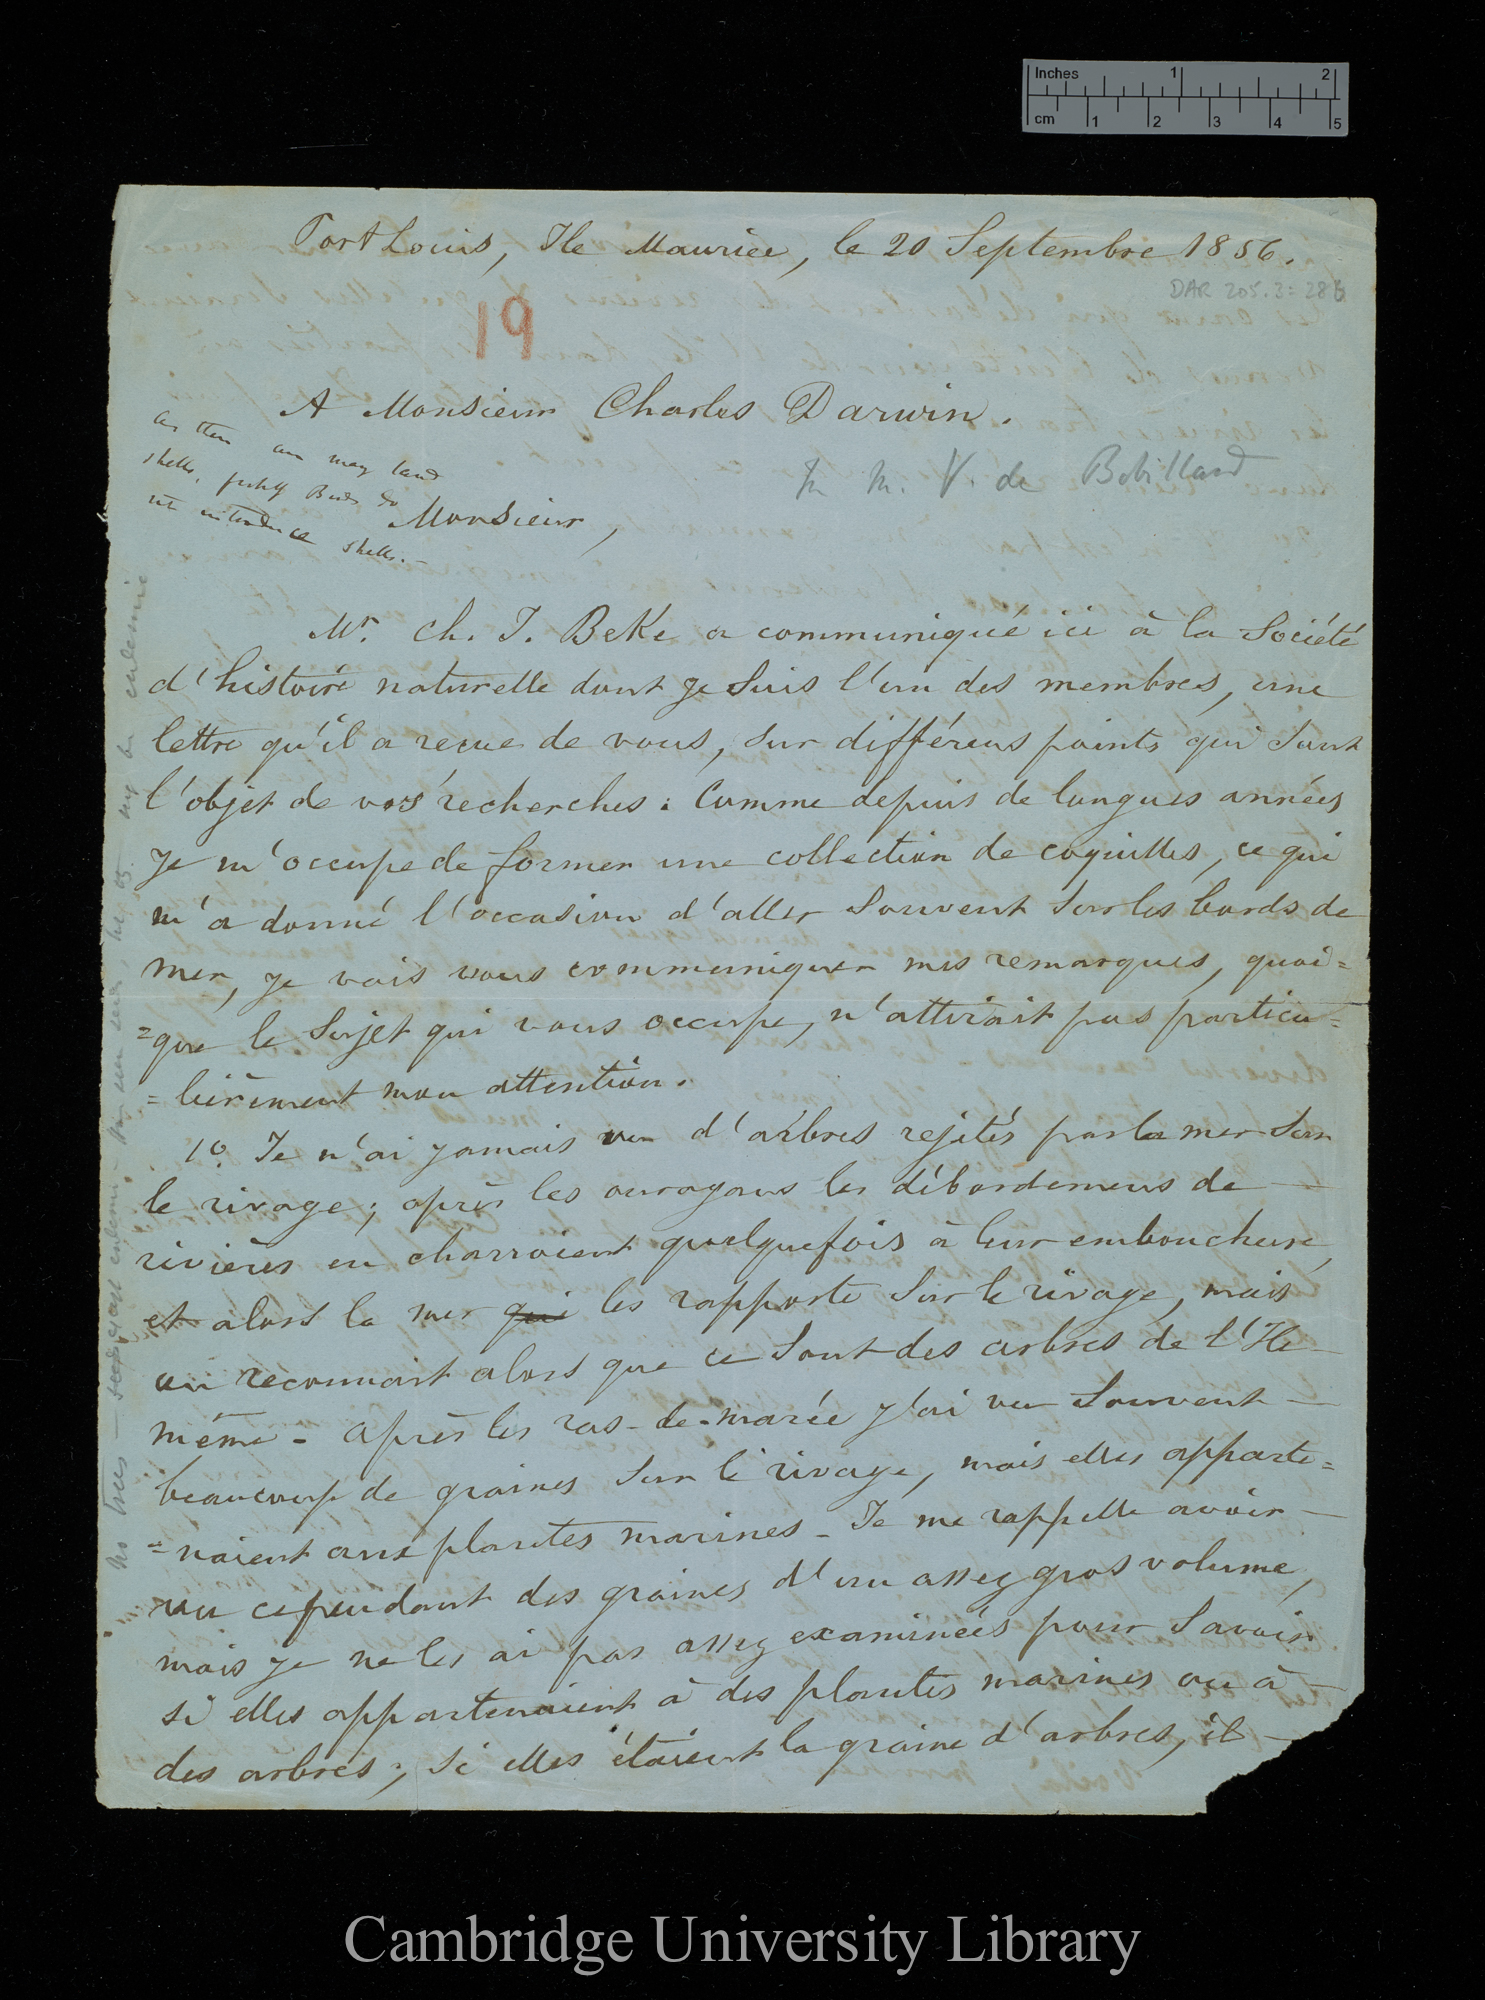 Inches 1 2
cm 1 2 3 4 5
Port Louis, Ile Maurice, le 20 Septembre 1856.
DAR 205.3: 286
19
A Monsieur Charles Darwin.
V. de Robillard
As there are many land
shells, Birds do
not introduce shells.—
Monsieur,
Mr. Ch. T. Beke a communiqué ici à la Société
d'histoire naturelle dont je suis l'un des membres, une
lettre qu'il a reçue de vous, sur différens points qui sont
l'objet de vos recherches : Comme depuis de longues années
je m'occupe de former une collection de coquilles, ce qui
m'a donné l'occasion d'aller souvent sur les bords de
mer, je vais vous communiquer mes remarques, quoi=
=que le sujet qui vous occupe, n'attirait pas particu=
=lièrement mon attention.
1o. Je n'ai jamais vu d'arbres rejetés par la mer sur
le rivage ; après les ouragans les débordemens de
rivières en charroient quelquefois à leur embouchure,
et alors la mer qui les rapporte sur le rivage, mais
on reconnait alors que ce sont des arbres de l'Ile
même - après les ras-de-marée j'ai vu souvent
beaucoup de graines sur le rivage, mais elles apparte=
=naient aux plantes marines - Je me rappelle avoir
vu cependant des graines d'un assez gros volume,
mais je ne les ai pas assez examinées pour savoir
si elles appartenaient à des plantes marines ou à
des arbres ; si elles étaient la graine d'arbres, il
No trees
Cambridge University Library